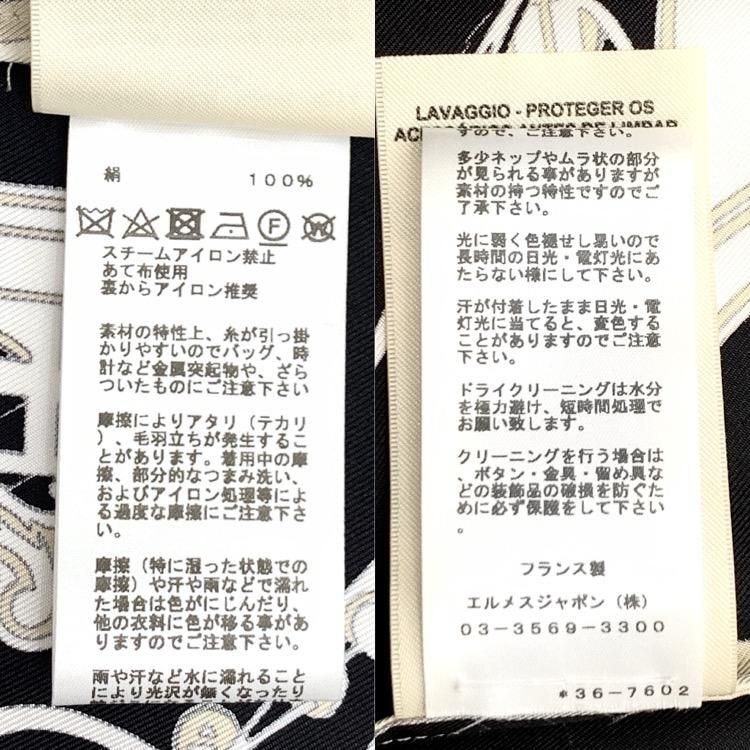 絹 100%
F
W
スチームアイロン禁止
あて布使用
裏からアイロン推奨
素材の特性上、糸が引っ掛
かりやすいのでバッグ、時
計など金属突起物や、ざら
ついたものにご注意下さい
摩擦によりアタリ（テカリ
）、毛羽立ちが発生するこ
とがあります。着用中の摩
擦、部分的なつまみ洗い、
およびアイロン処理等によ
る過度な摩擦にご注意下さ
い。
摩擦（特に湿った状態での
摩擦）や汗や雨などで濡れ
た場合は色がにじんだり、
他の衣料に色が移る事があ
りますのでご注意下さい。
雨や汗など水に濡れること
により光沢が無くなったり
LAVAGGIO - PROTEGER OS
すので、ご注意下さい。
多少ネップやムラ状の部分
が見られる事がありますが
素材の持つ特性ですのでご
了承下さい。
光に弱く色褪せし易いので
長時間の日光・電灯光にあ
たらない様にして下さい。
汗が付着したまま日光・電
灯光に当てると、変色する
ことがありますのでご注意
下さい。
ドライクリーニングは水分
を極力避け、短時間処理で
お願い致します。
クリーニングを行う場合は
、ボタン・金具・留め具な
どの装飾品の破損を防ぐた
めに必ず保護をして下さい
。
フランス製
エルメスジャポン（株）
03-3569-3300
*36-7602